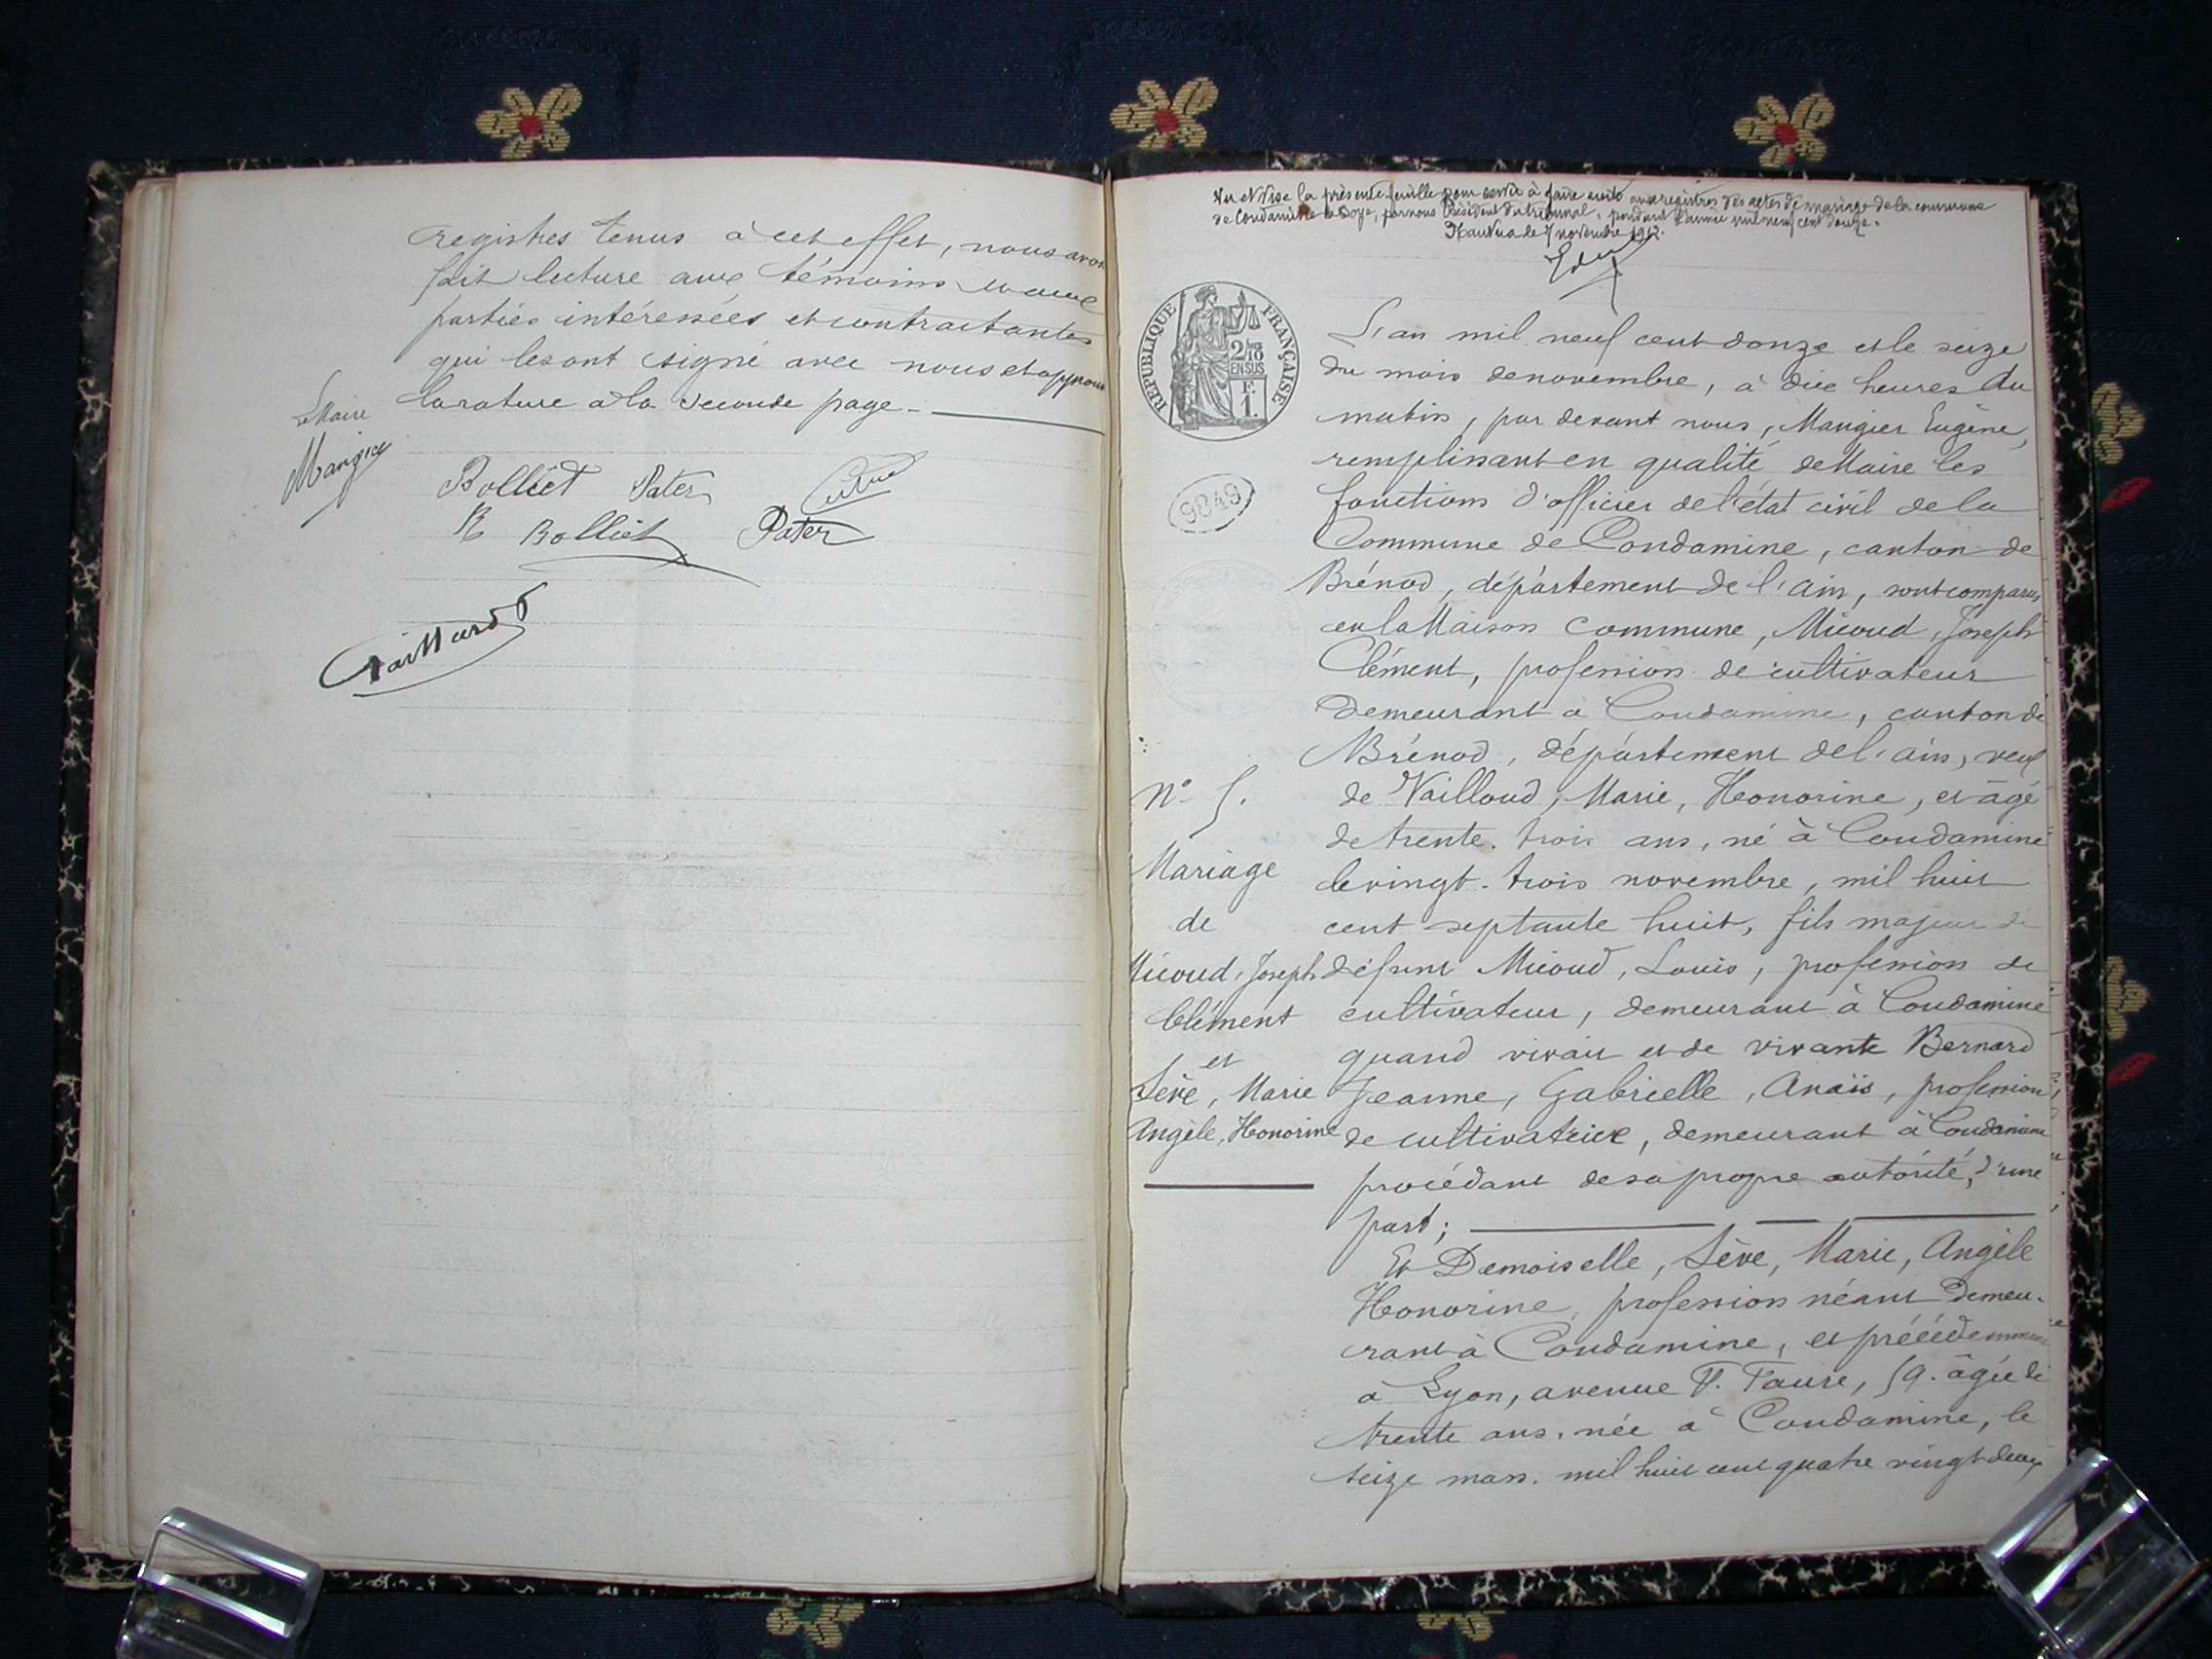 registres tenus à cet effet, nous avons
fait lecture aux témoins et aux
parties intéressées et contractantes
qui les ont signé avec nous et approuvé
la rature à la seconde page.
Le Maire
Mangier
Bolliet Pater
R Bolliet Pater
Gaillard
Vu et Visé la présente feuille pour servir à faire suite aux registres des actes de mariage de la commune
de Condamine la Doye, par nous Président du tribunal, pendant l'année mil neuf cent douze.
Nantua le 7 novembre 1912.
RÉPUBLIQUE FRANÇAISE
2/10
EN SUS
F.
1.
9849
L'an mil neuf cent douze et le seize
du mois de novembre, à dix heures du
matin, par devant nous, Mangier Eugène,
remplissant en qualité de Maire les
fonctions d'officier de l'état civil de la
Commune de Condamine, canton de
Brénod, département de l'ain, sont comparus
en la Maison Commune, Micoud, Joseph
Clément, profession de cultivateur
demeurant à Condamine, canton de
Brénod, département de l'ain, veuf
de Vailloud, Marie, Honorine, et âgé
de trente-trois ans, né à Condamine
le vingt-trois novembre, mil huit
cent septante huit, fils majeur de
défunt Micoud, Louis, profession de
cultivateur, demeurant à Condamine
quand vivait et de vivante Bernard
Jeanne, Gabrielle, Anaïs, profession
de cultivatrice, demeurant à Condamine
procédant de sa propre autorité, d'une
part;
Et Demoiselle, Sève, Marie, Angèle
Honorine, profession néant demeu-
rant à Condamine, et précédemment
à Lyon, avenue F. Faure, 59. âgée de
trente ans, née à Condamine, le
seize mars. mil huit cent quatre vingt deux
N° 5.
Mariage
de
Micoud, Joseph
Clément
et
Sève, Marie
Angèle, Honorine